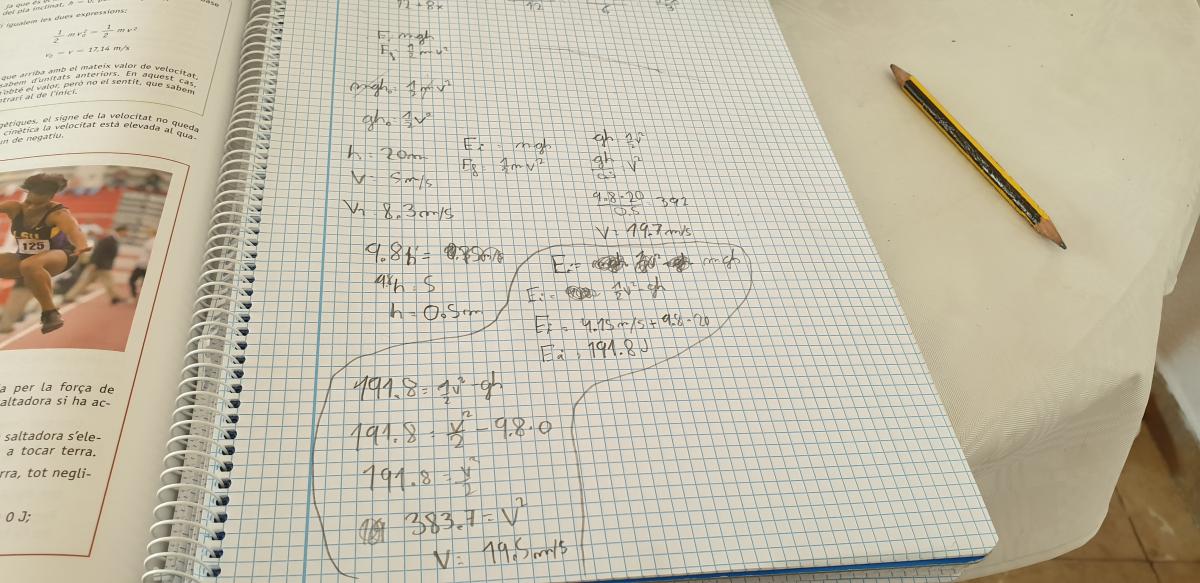 del pla inclinat, h = 0,
i igualem les dues expressions:
1/2 m v₀² = 1/2 m v²
v₀ = v = 17,14 m/s
que arriba amb el mateix valor de velocitat,
sabem d'unitats anteriors. En aquest cas,
obté el valor, però no el sentit, que sabem
ntrari al de l'inici.
gètiques, el signe de la velocitat no queda
cinètica la velocitat està elevada al qua-
un de negatiu.
125
a per la força de
altadora si ha ac-
saltadora s'ele-
a tocar terra.
rra, tot negli-
0 J;
12 + 8x
12
6
mgh
1/2 mv²
mgh = 1/2 mv²
gh = 1/2 v²
h = 20m
V = 5m/s
8.3m/s
9.8h =
h = 0.5m
= mgh
1/2 mv²
gh 1/2 v²
gh v²
9.8·20 / 0.5 = 392
V = 19.7m/s
mgh
1/2 v² gh
= 4.15m/s + 9.8·20
191.8J
191.8 = 1/2 v² gh
191.8 = v²/2 - 9.8·0
191.8 = v²/2
383.7 = V²
V = 19.5m/s